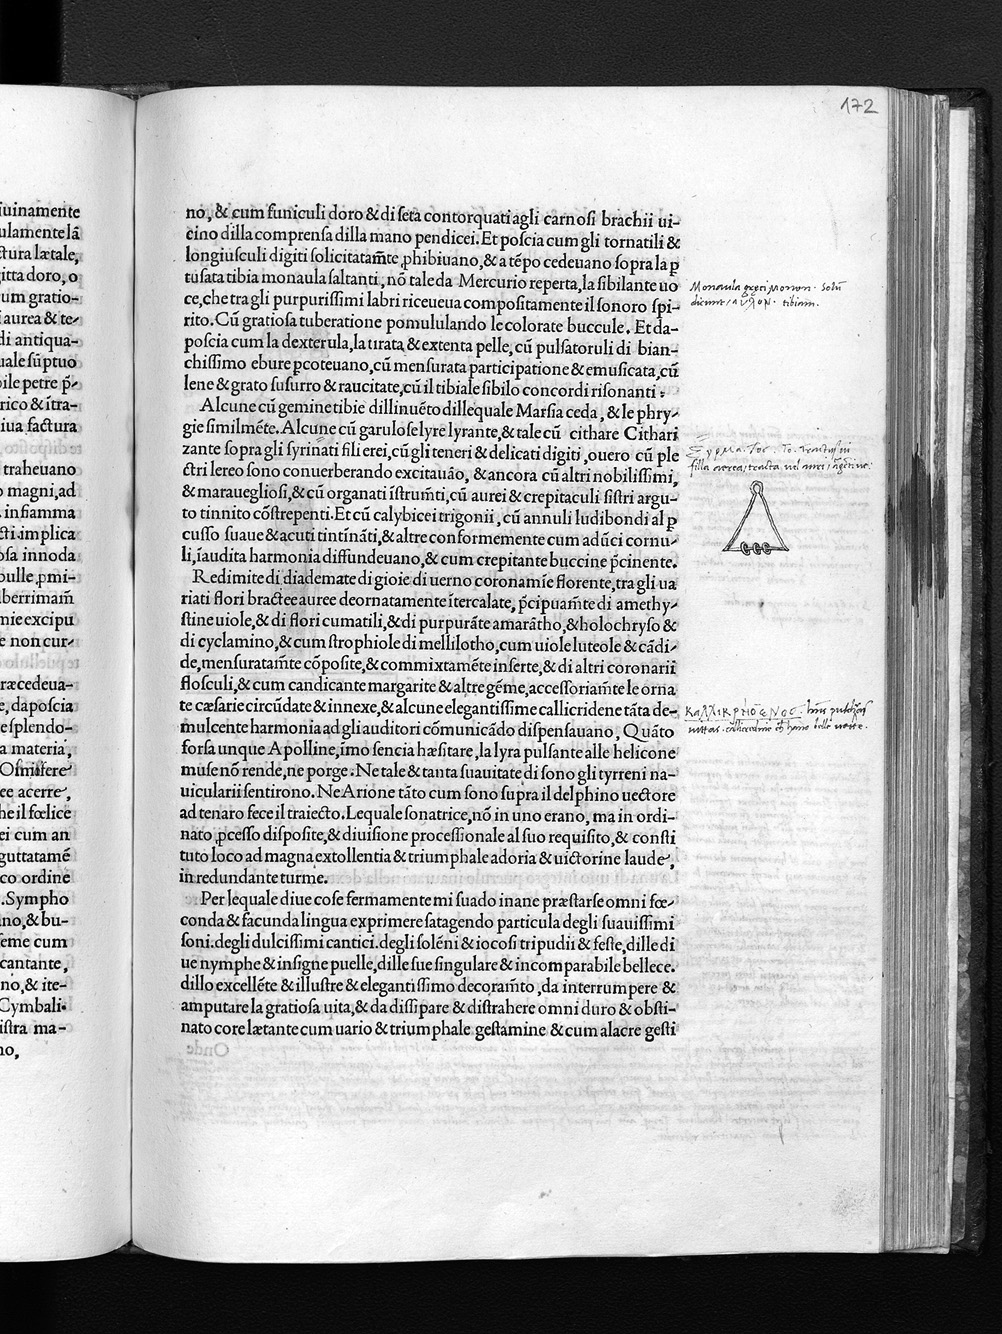 172
iuinamente
ulamente lã
ctura lætale,
gitta doro, o
um gratio-
i aurea & te-
di antiqua-
uale sũptuo
bile petre p̃-
rico & ĩtra-
iua factura
traheuano
o magni, ad
. in fiamma
cti. implica
osa innoda
pulle, ꝓmi-
lberrimam̃
mie excipu
e non cur-
ræcedeua-
e, da poscia
e splendo-
a materia,
Osmissere
ee acerre,
he il fœlice
ei cum an
guttatamẽ
co ordine
. Sympho
ino, & bu-
seme cum
cantante,
no, & ite-
Cymbali.
istra ma-
no,
no, & cum funiculi doro & di seta contorquati agli carnosi brachii ui-
cino dilla comprensa dilla mano pendicei. Et poscia cum gli tornatili &
longiusculi digiti solicitatam̃te ꝓhibiuano, & a tẽpo cedeuano sopra la ꝑ
tusata tibia monaula saltanti, nõ tale da Mercurio reperta, la sibilante uo
ce, che tra gli purpurissimi labri riceueua compositamente il sonoro spi-
rito. Cũ gratiosa tuberatione pomululando le colorate buccule. Et da-
poscia cum la dexterula, la tirata & extenta pelle, cũ pulsatoruli di bian-
chissimo ebure ꝑcoteuano, cũ mensurata participatione & emusicata, cũ
lene & grato susurro & raucitate, cũ il tibiale sibilo concordi risonanti.
Alcune cũ gemine tibie dillinuẽto dillequale Marsia ceda, & le phry-
gie similmẽte. Alcune cũ garulose lyre lyrante, & tale cũ cithare Cithari
zante sopra gli syrinati fili erei, cũ gli teneri & delicati digiti, ouero cũ ple
ctri lereo sono conuerberando excitauão, & ancora cũ altri nobilissimi,
& marauegliosi, & cũ organati ĩstrum̃ti, cũ aurei & crepitaculi sistri argu-
to tinnito cõstrepenti. Et cũ calybicei trigonii, cũ annuli ludibondi al ꝑ
cusso suaue & acuti tintinãti, & altre conformemente cum adũci cornu-
li, ĩaudita harmonia diffundeuano, & cum crepitante buccine p̃cinente.
Redimite di diademate di gioie di uerno coronamĩe florente, tra gli ua
riati flori bractee auree deornatamente ĩtercalate, p̃cipuam̃te di amethy-
stine uiole, & di flori cumatili, & di purpurãte amarãtho, & holochryso &
di cyclamino, & cum strophiole di mellilotho, cum uiole luteole & cãdi-
de, mensuratam̃te cõposite, & commixtamẽte inserte, & di altri coronarii
flosculi, & cum candicante margarite & altre gẽme, accessoriam̃te le orna
te cæsarie circũdate & innexe, & alcune elegantissime callicridene tãta de-
mulcente harmonia ad gli auditori cõmunicãdo dispensauano, Quãto
forsa unque Apolline, ĩmo sencia hæsitare, la lyra pulsante alle helicone
muse nõ rende, ne porge. Ne tale & tanta suauitate di sono gli tyrreni na-
uicularii sentirono. Ne Arione tãto cum sono supra il delphino uectore
ad tenaro fece il traiecto. Lequale sonatrice, nõ in uno erano, ma in ordi-
nato ꝓcesso disposite, & diuisione processionale al suo requisito, & consti
tuto loco ad magna extollentia & triumphale adoria & uictorine laude,
in redundante turme.
Per lequale diue cose fermamente mi suado inane præstarse omni fœ-
conda & facunda lingua exprimere satagendo particula degli suauissimi
soni. degli dulcissimi cantici. degli solẽni & iocosi tripudii & feste, dille di
ue nymphe & insigne puelle, dille sue singulare & incomparabile bellece.
dillo excellẽte & illustre & elegantissimo decoram̃to, da interrumpere &
amputare la gratiosa uita, & da dissipare & distrahere omni duro & obsti-
nato core lætante cum uario & triumphale gestamine & cum alacre gesti
Monaula greci Monon. Solũ
dicunt, αυλον. tibiam.
Συρμα. τος. το. tractus
filla aerea, tracta, vel aurei,
ΚΑΛΛΙΚΡΗΔΕΝΟΣ.
vittas. callicredine belle vette.